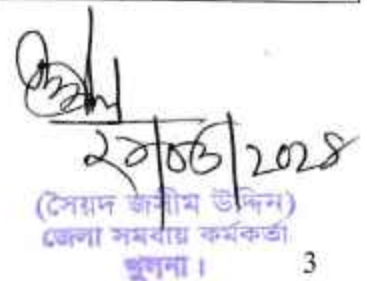 ২৭|০৩|২০২৪
(সৈয়দ জসীম উদ্দিন)
জেলা সমবায় কর্মকর্তা
খুলনা।
3